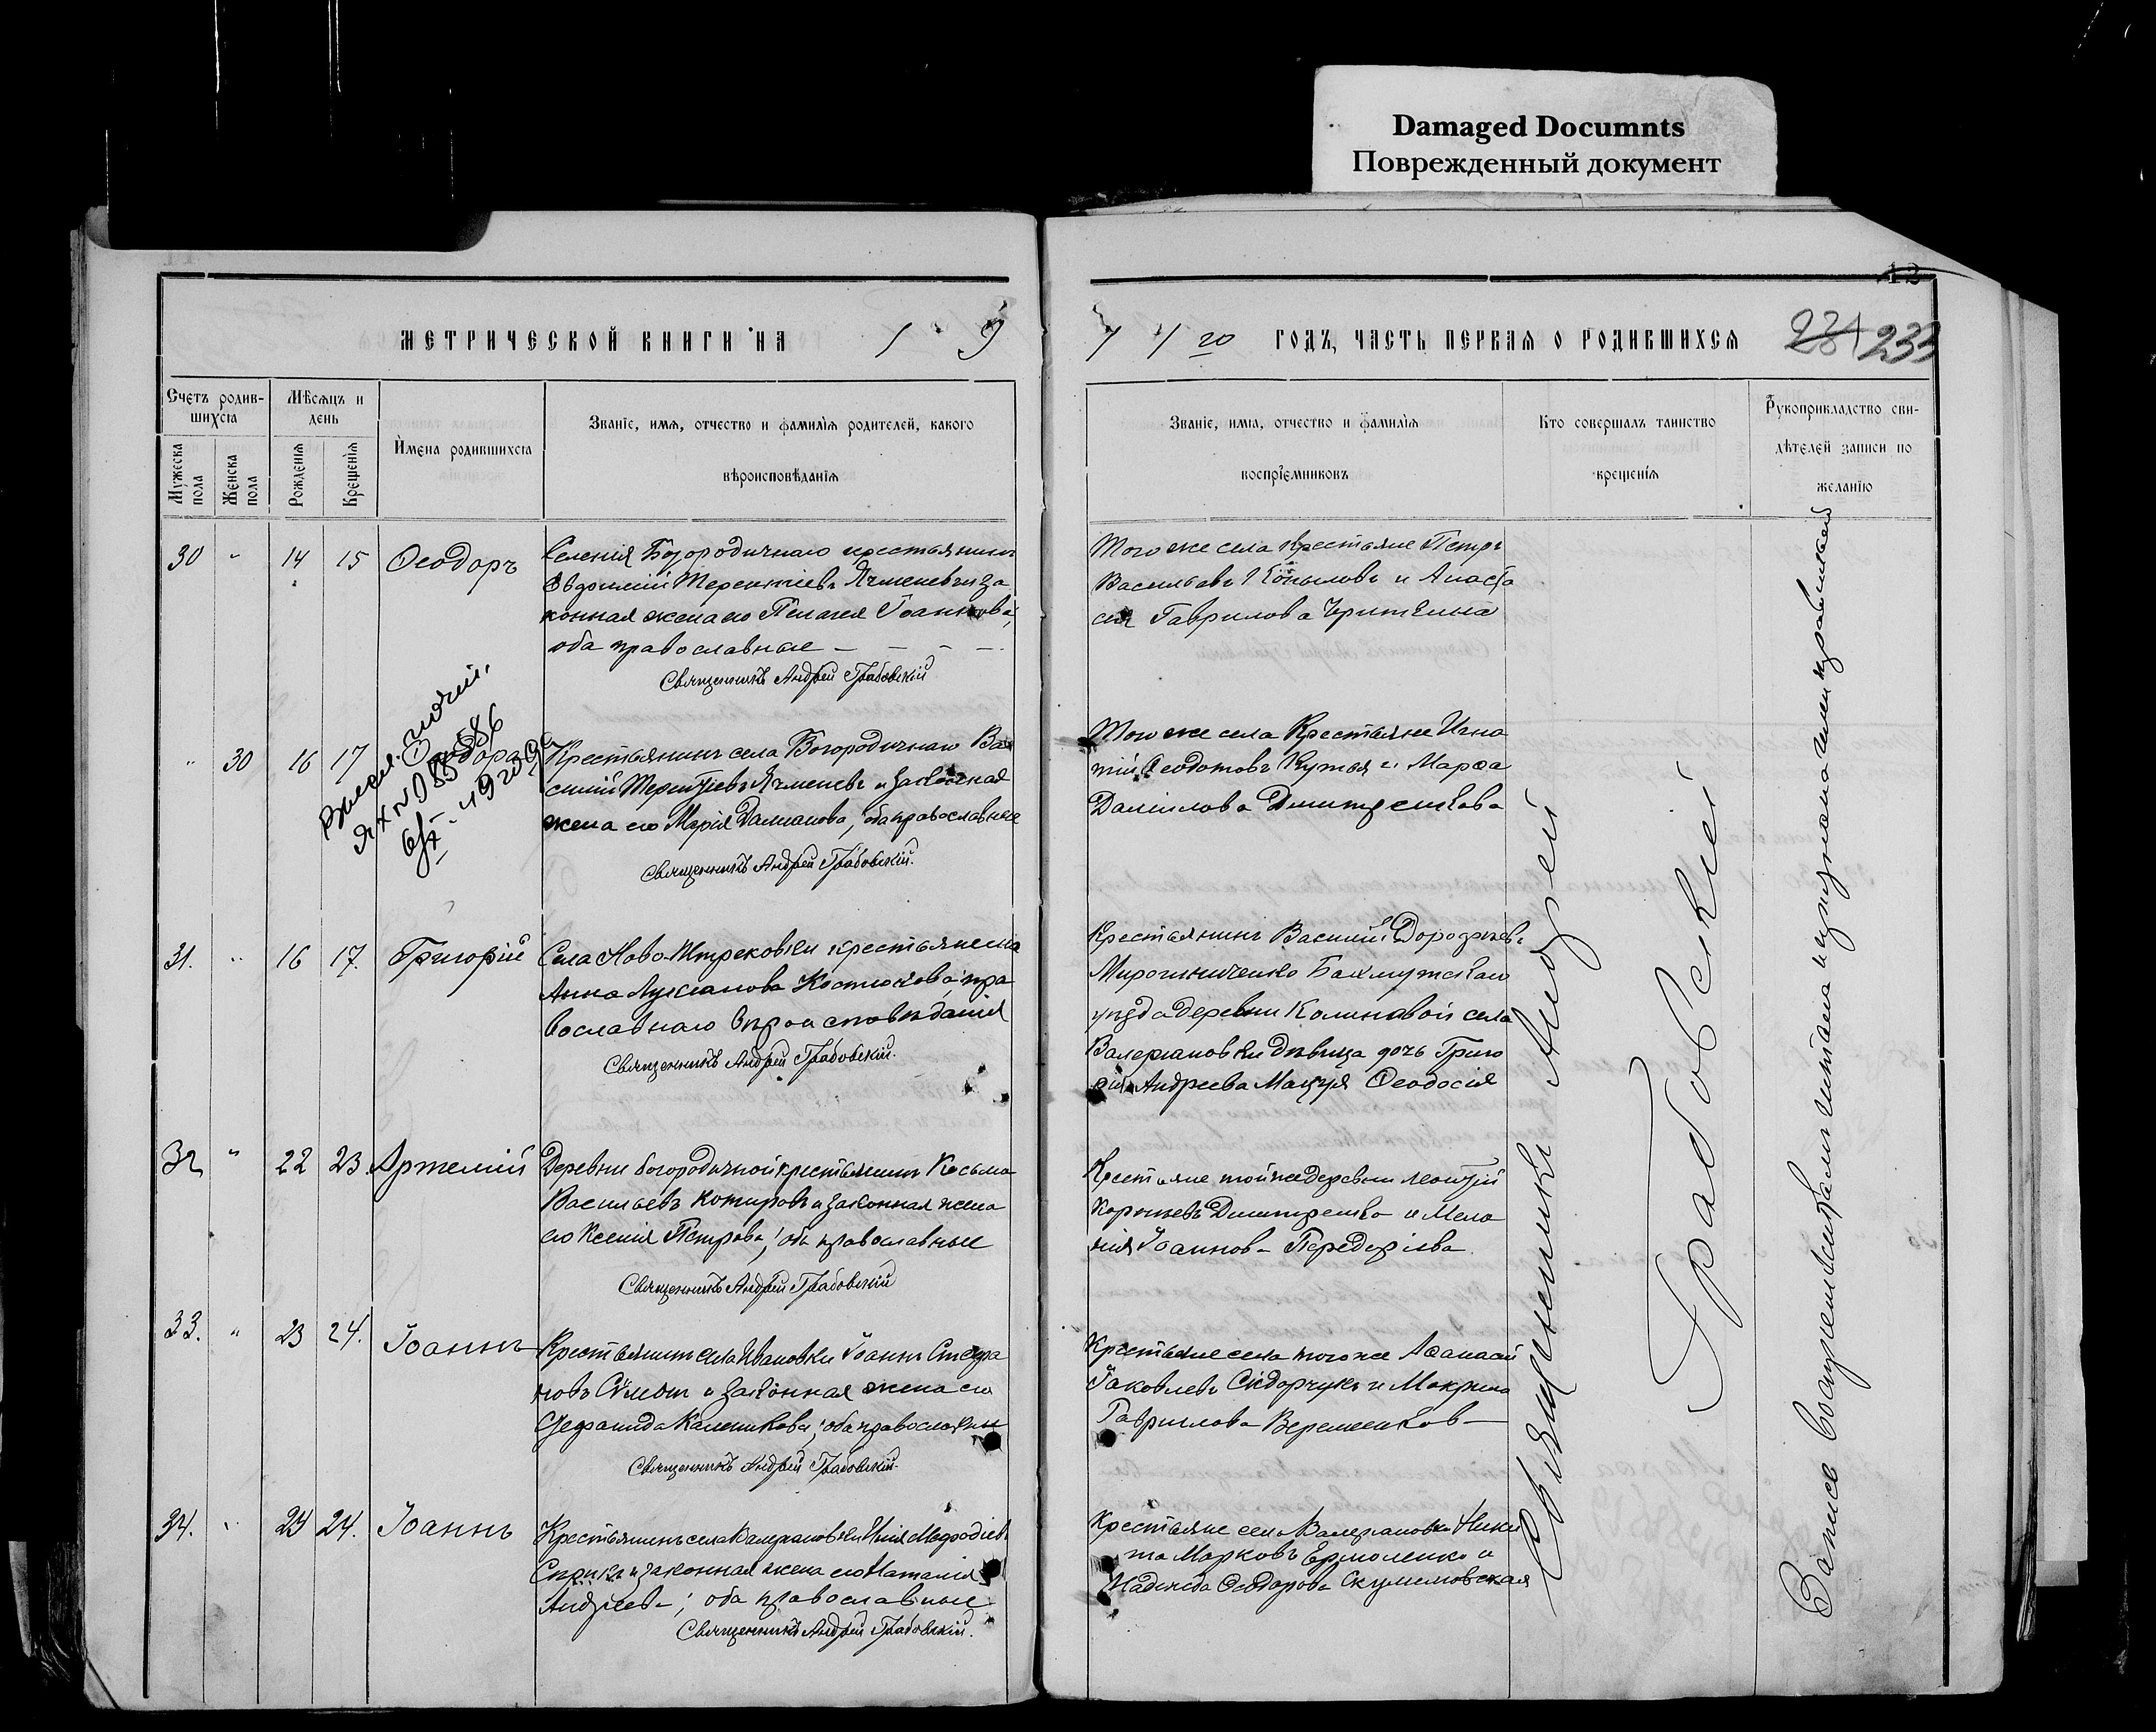 Damaged Documnts
Поврежденный документ
МЕТРИЧЕСКОЙ КНИГИ НА 19
14 го ГОДЪ, ЧАСТЬ ПЕРВАЯ О РОДИВШИХСЯ
233
Счетъ родив-
шихся
Мѣсяцъ и
день
Мужеска пола
Женска пола
Рожденія
Крещенія
Имена родившихся
Званіе, имя, отчество и фамилія родителей, какого
вѣроисповѣданія
Званіе, имя, отчество и фамилія
воспріемниковъ
Кто совершалъ таинство
крещенія
Рукоприкладство сви-
дѣтелей записи по
желанію
30 " 14 15 Ѳеодоръ
Селенія Богородичнаго крестьянинъ
Евѳимій Терентіевъ Ячменевъ и за
конная жена его Пелагея Іоаннова,
оба православные
Священникъ Андрей Грабовскій
Того же села крестьяне Петръ
Васильевъ Копыловъ и Анаста
сія Гаврилова
" 30 16 17 Ѳеодора
Крестьянинъ села Богородичнаго Ва
силій Терентіевъ Ячменевъ и законная
жена его Марія Даміанова, оба православные
Священникъ Андрей Грабовскій.
Того же села Крестьяне Игна
тій Ѳеодотовъ Кутья и Марѳа
Даніилова
31. " 16 17. Григорій
Села Ново- крестьянка
Анна Лукіанова Костюкова, пра
вославнаго вѣроисповѣданія
Священникъ Андрей Грабовскій.
Крестьянинъ Василій Дороѳеевъ
Мирошниченко Бахмутскаго
уѣзда деревни Калиновой села
Валеріановки дѣвица дочь Григо
рія Андреева Мацуя Ѳеодосія
32 " 22 23. Артемій
Деревни Богородичной крестьянинъ Косьма
Васильевъ и законная жена
его Ксенія Петрова, оба православные
Священникъ Андрей Грабовскій
Крестьяне той же деревни Леонтій
Дмитренко и Мела
нія Іоаннова Передеріева
33. " 23 24. Іоаннъ
Крестьянинъ села Ивановки Іоаннъ Стефа
новъ и законная жена его
оба православны
Священникъ Андрей Грабовскій.
Крестьяне села того же Аѳанасій
Іаковлевъ Сидорчукъ и Макрина
Гаврилова
34. " 23 24. Іоаннъ
Крестьянинъ села Валеріановки Илія Меѳодіевъ
и законная жена его Наталія
Андреева; оба православные
Священникъ Андрей Грабовскій.
Крестьяне села Валеріановки Ники
та Марковъ Ермоленко и
Надежда Ѳеодорова
Священникъ Андрей
Грабовскій